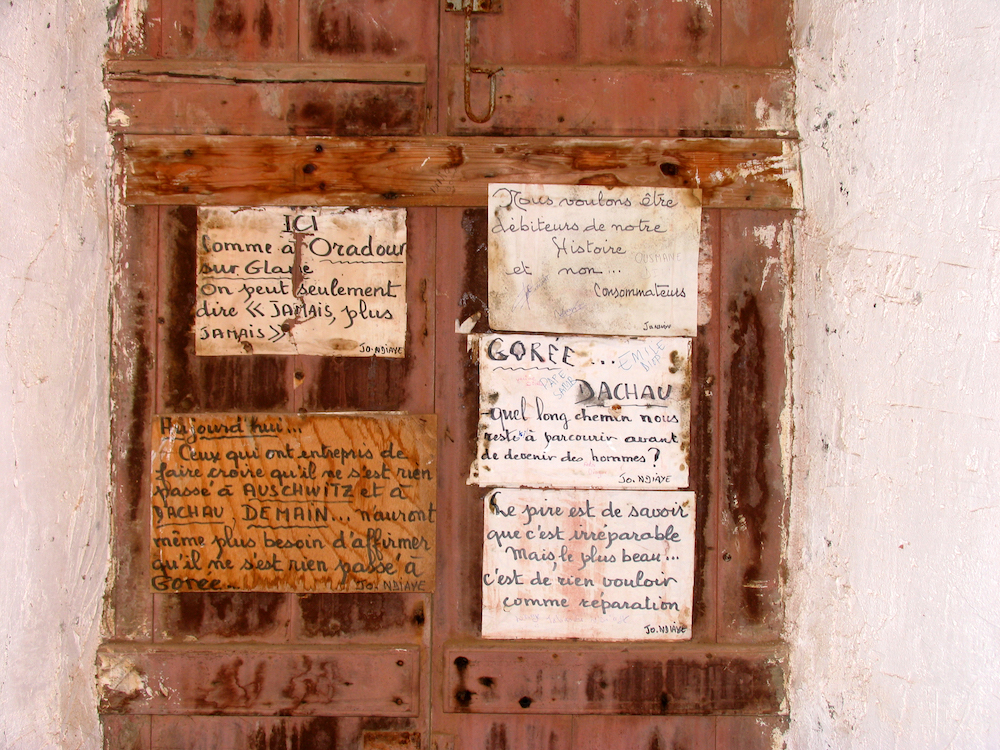 ICI
Comme à Oradour
sur Glane
On peut seulement
dire « JAMAIS, plus
JAMAIS »
Jo. NDIAYE
Aujourd'hui...
Ceux qui ont entrepris de
faire croire qu'il ne s'est rien
passé à AUSCHWITZ et à
DACHAU DEMAIN... n'auront
même plus besoin d'affirmer
qu'il ne s'est rien passé à
Gorée...
Jo. NDIAYE
Nous voulons être
débiteurs de notre
Histoire
et non...
Consommateurs
OUSMANE
GORÉE ...
DACHAU
quel long chemin nous
reste à parcourir avant
de devenir des hommes ?
Jo. NDIAYE
Le pire est de savoir
que c'est irréparable
Mais, le plus beau...
c'est de rien vouloir
comme réparation
Jo. NDIAYE